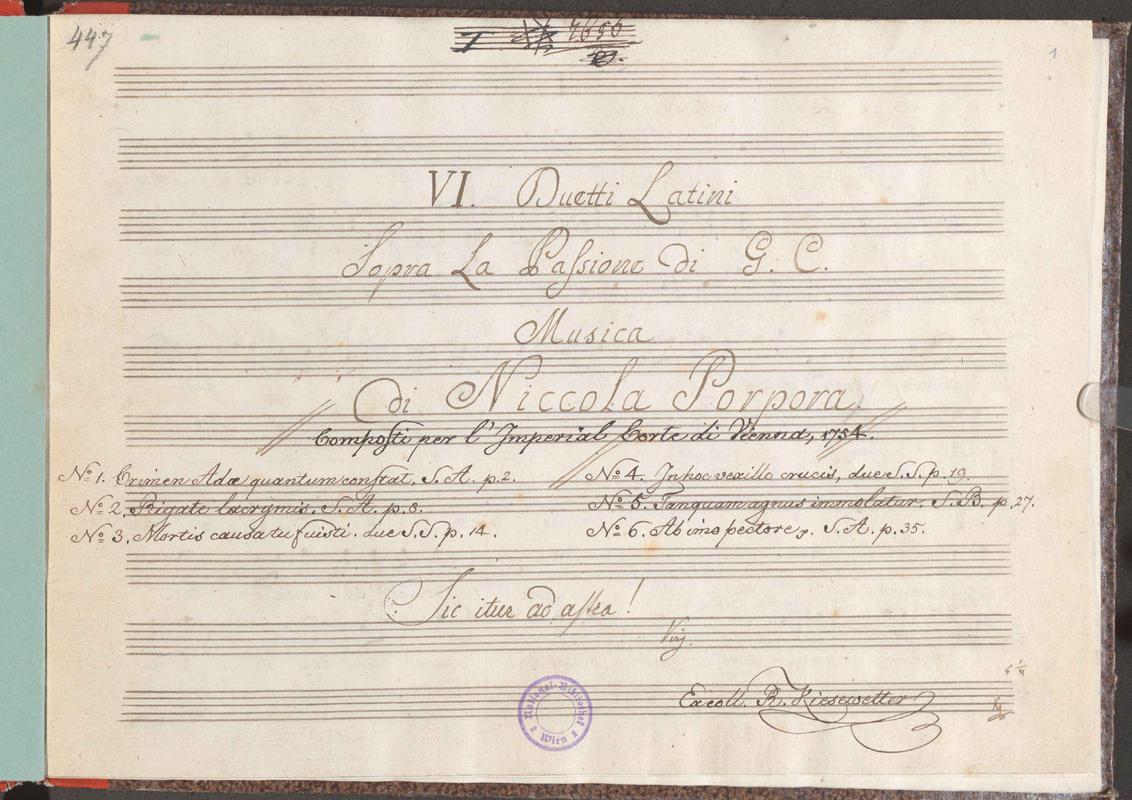 447
4656
1
VI. Duetti Latini
Sopra La Passione di G. C.
Musica
di Niccola Porpora
Composti per l'Imperial Corte di Vienna, 1754.
No 1. Crimen Adæ quantum constat. S. A. p. 2.
No 2. Rigate lacrymis. S. A. p. 8.
No 3. Mortis causa tu fuisti. due S. S. p. 14.
No 4. In hoc vexillo crucis, due S. S. p. 19.
No 5. Tanquam agnus immolatur. S. B. p. 27.
No 6. Ab imo pectore. S. A. p. 35.
Sic itur ad astra!
Virg.
Ex coll. R. Kiesewetter
National-Bibliothek
Wien